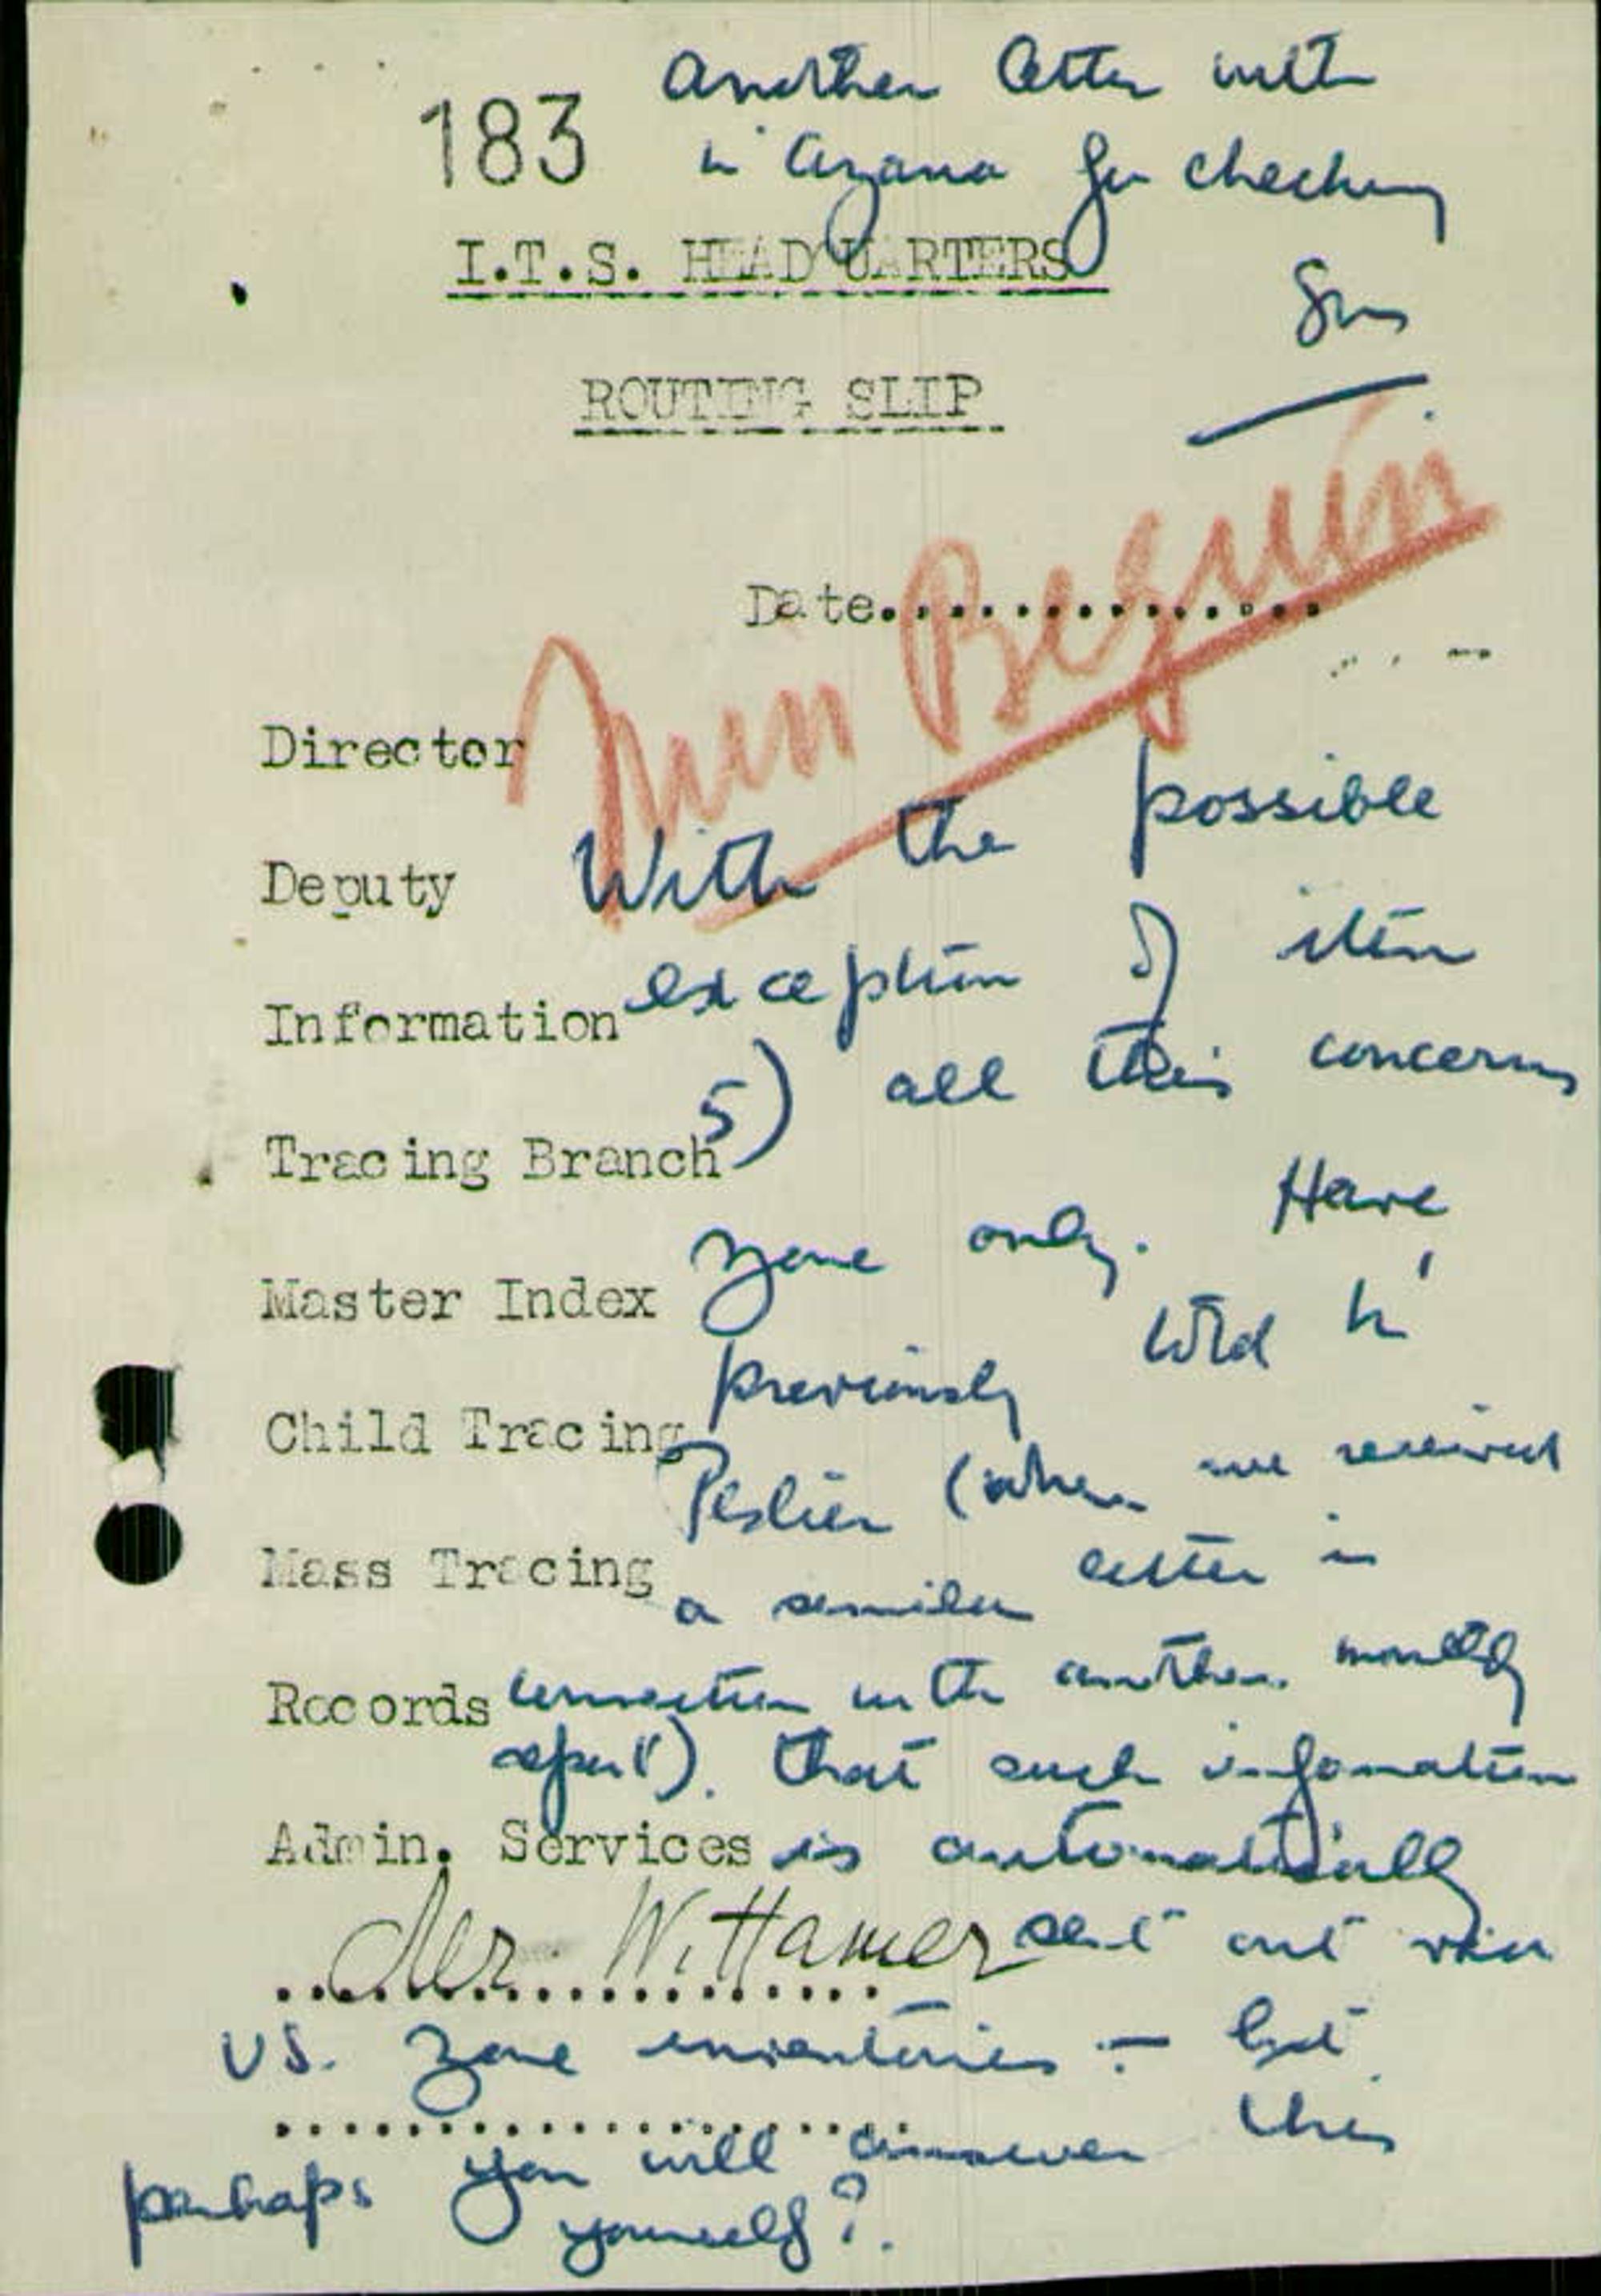 another letter with
183
in for checking
I.T.S. HEADQUARTERS
ROUTING SLIP
Date..............
Miss Beguin
Director
With the possible
Deputy
exception of item
Information
5) all this concerns
Tracing Branch
zone only. Have
Master Index
previously told Mr
Child Tracing
Peslier (when we received
Mass Tracing
a similar letter in
Records
connection with another monthly
report). that such information
Admin. Services
is automatically
Mr. Wittamer
sent out
US. zone inventories - but
....................
perhaps you will answer this
yourself?.